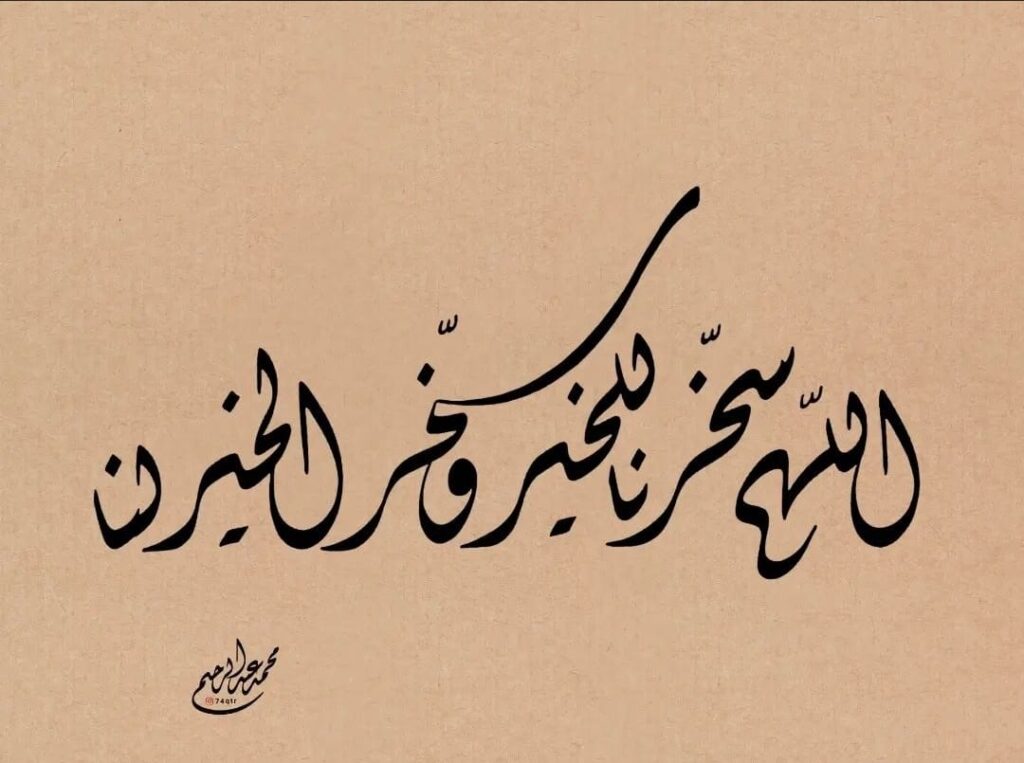 اللّهم سخّرنا للخير وسخّر الخير لنا
محمد عبدالرحيم
74q1r